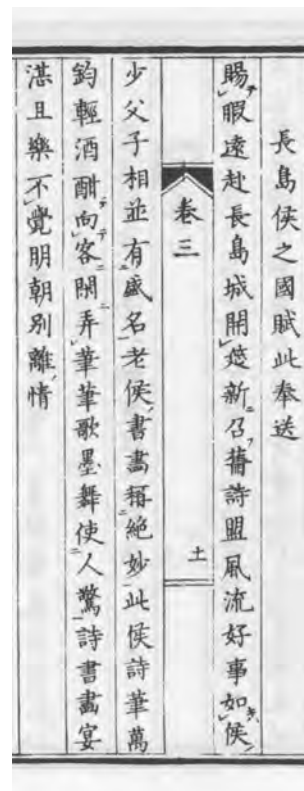 長島侯之國賦此奉送
賜暇遠赴長島城開筵新召舊詩盟風流好事如侯
卷三 十
少父子相並有盛名老侯書畫稱絕妙此侯詩筆萬
鈞輕酒酣向客閑弄筆筆歌墨舞使人驚詩書畫宴
湛且樂不覺明朝別離情